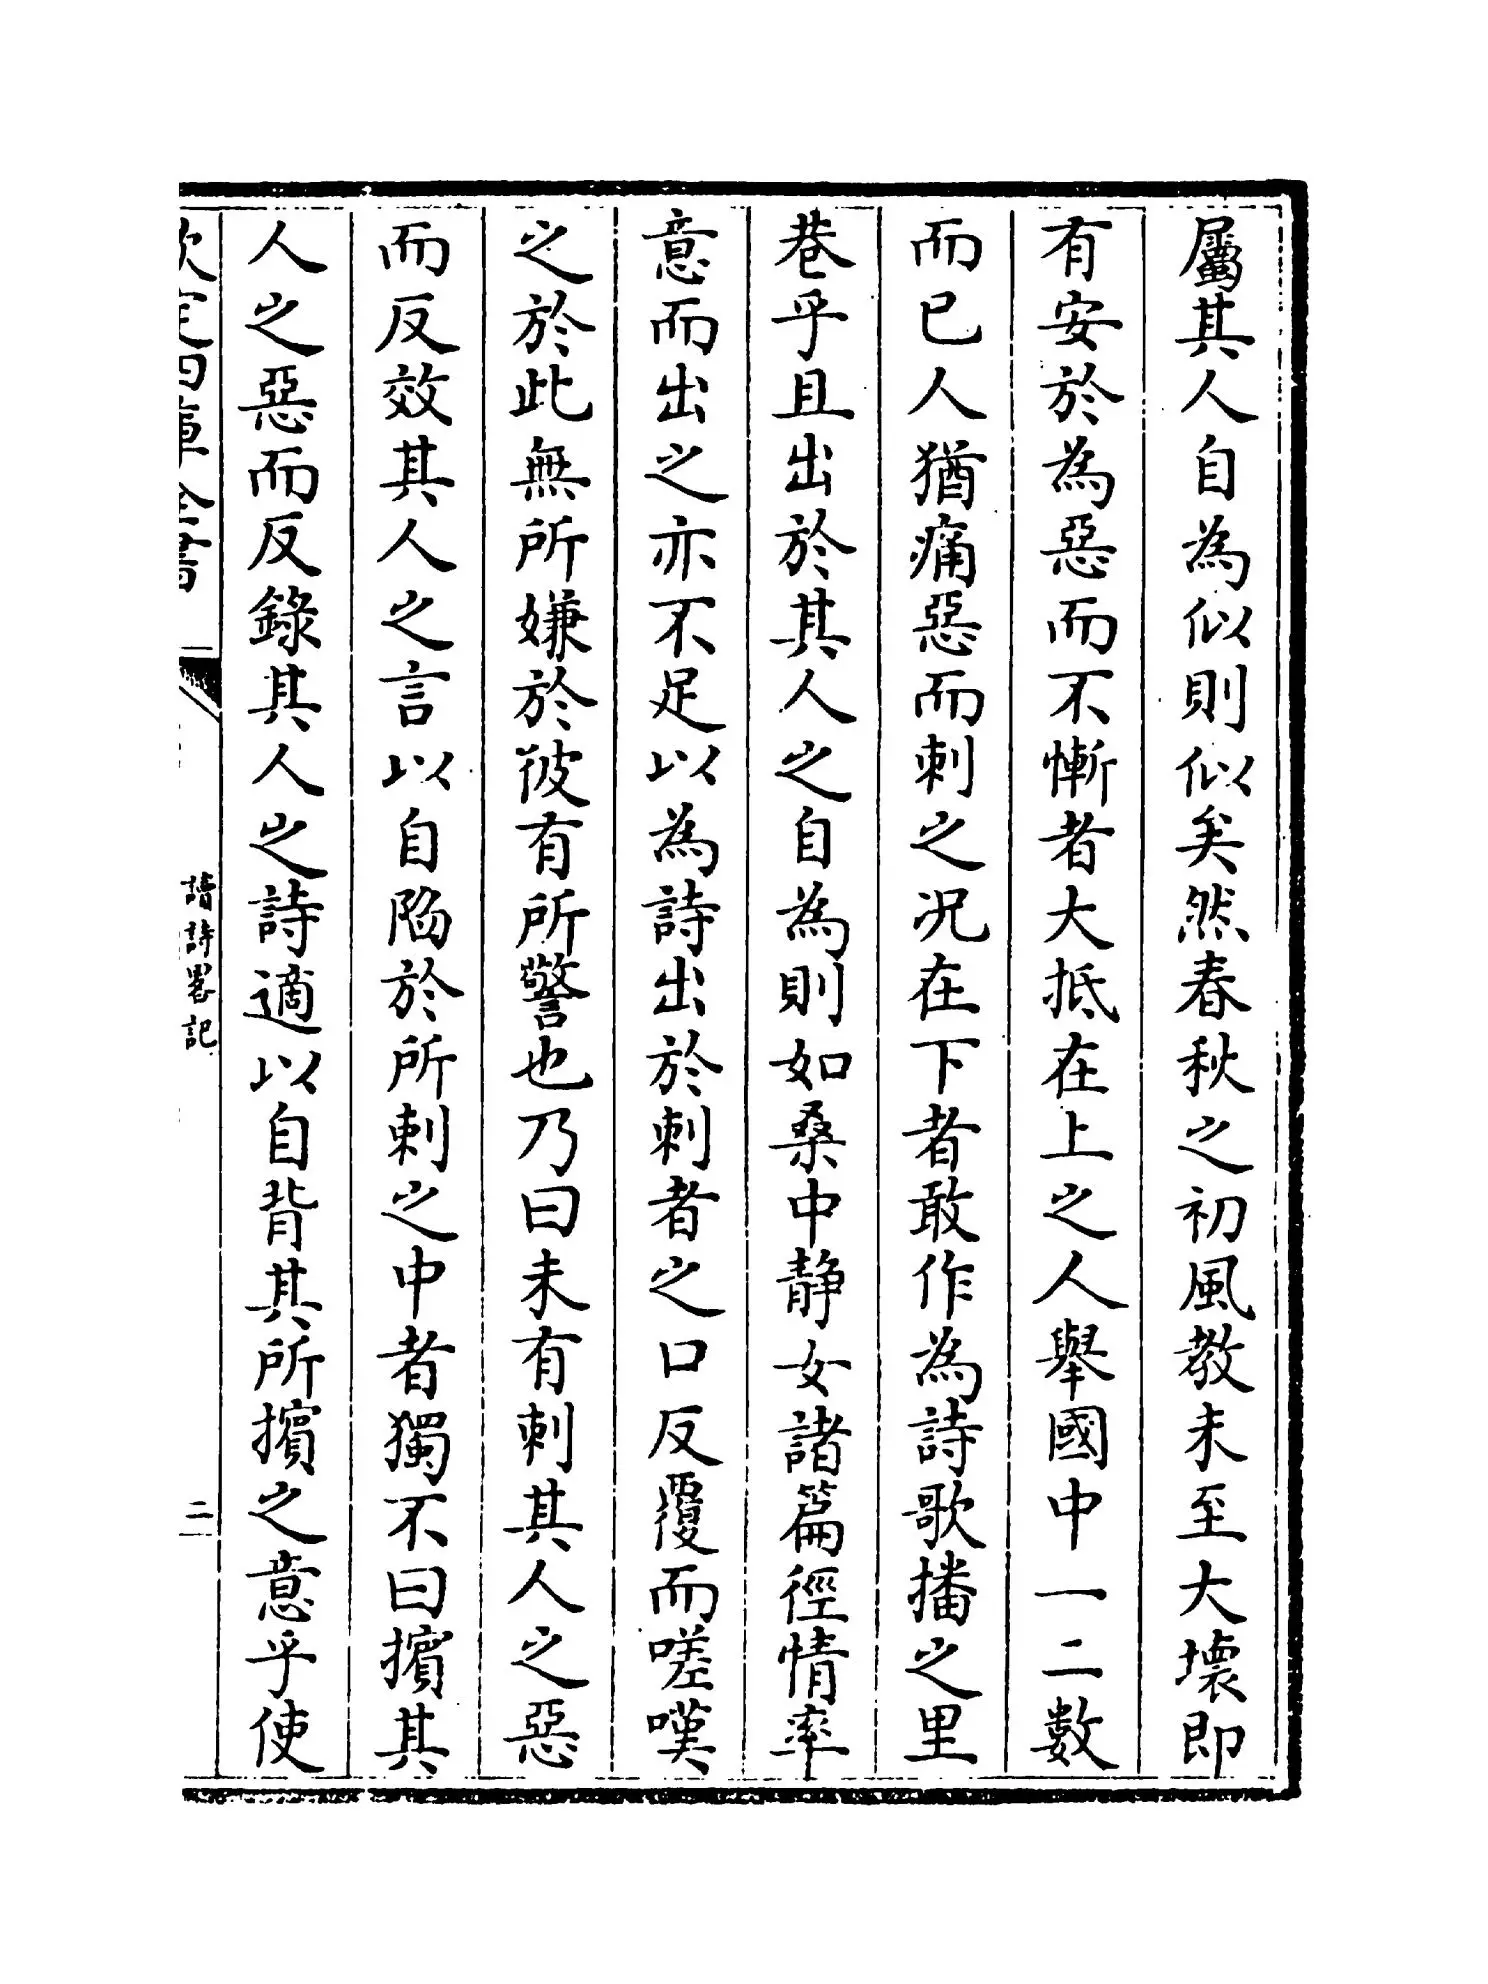 屬其人自為似則似矣然春秋之初風教未至大壞即
有安於為惡而不慚者大抵在上之人舉國中一二數
而已人猶痛惡而刺之况在下者敢作為詩歌播之里
巷乎且出於其人之自為則如桑中静女諸篇徑情率
意而出之亦不足以為詩出於刺者之口反覆而嗟嘆
之於此無所嫌於彼有所警也乃曰未有刺其人之惡
而反效其人之言以自陷於所刺之中者獨不曰擯其
人之惡而反錄其人之詩適以自背其所擯之意乎使
欽定四庫全書
讀詩畧記
二